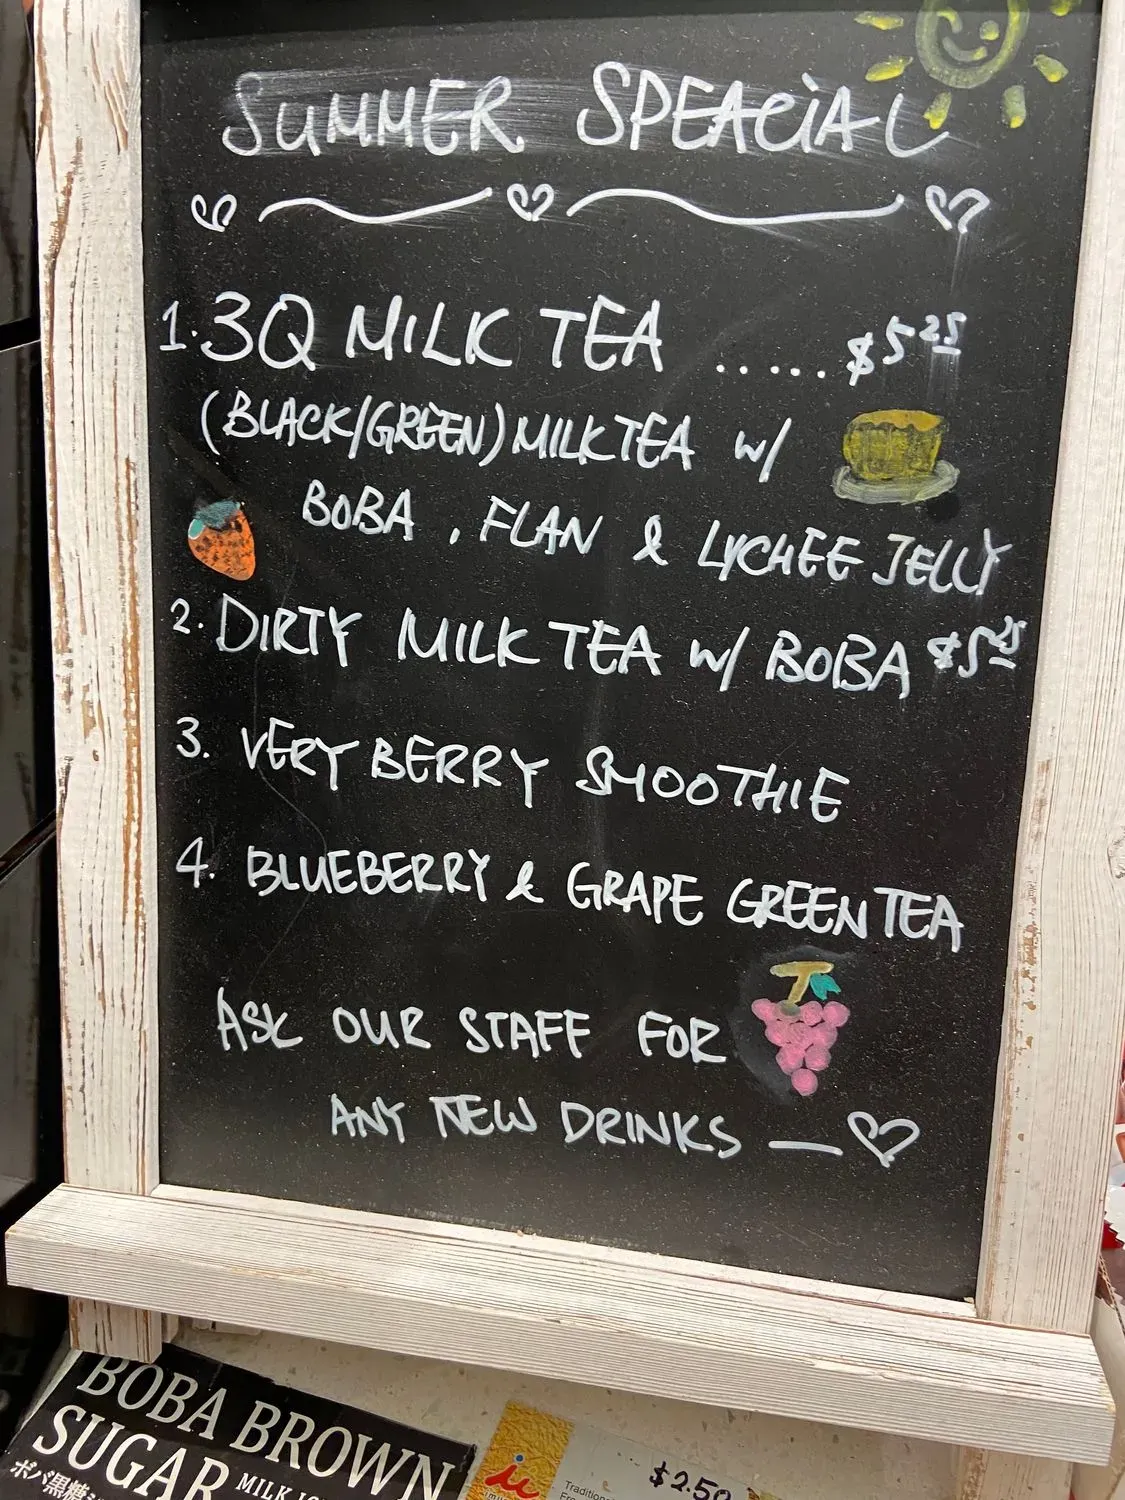 SUMMER SPEACiAL
1. 3Q MILK TEA ...... $5 25
(BLACK/GREEN) MILK TEA w/
BOBA , FLAN & LYCHEE JELLY
2. DIRTY MILK TEA w/ BOBA $5 25
3. VERY BERRY SMOOTHIE
4. BLUEBERRY & GRAPE GREEN TEA
ASK OUR STAFF FOR
ANY NEW DRINKS —
BOBA BROWN
SUGAR MILK
ボバ黒糖
Traditional
$2.50